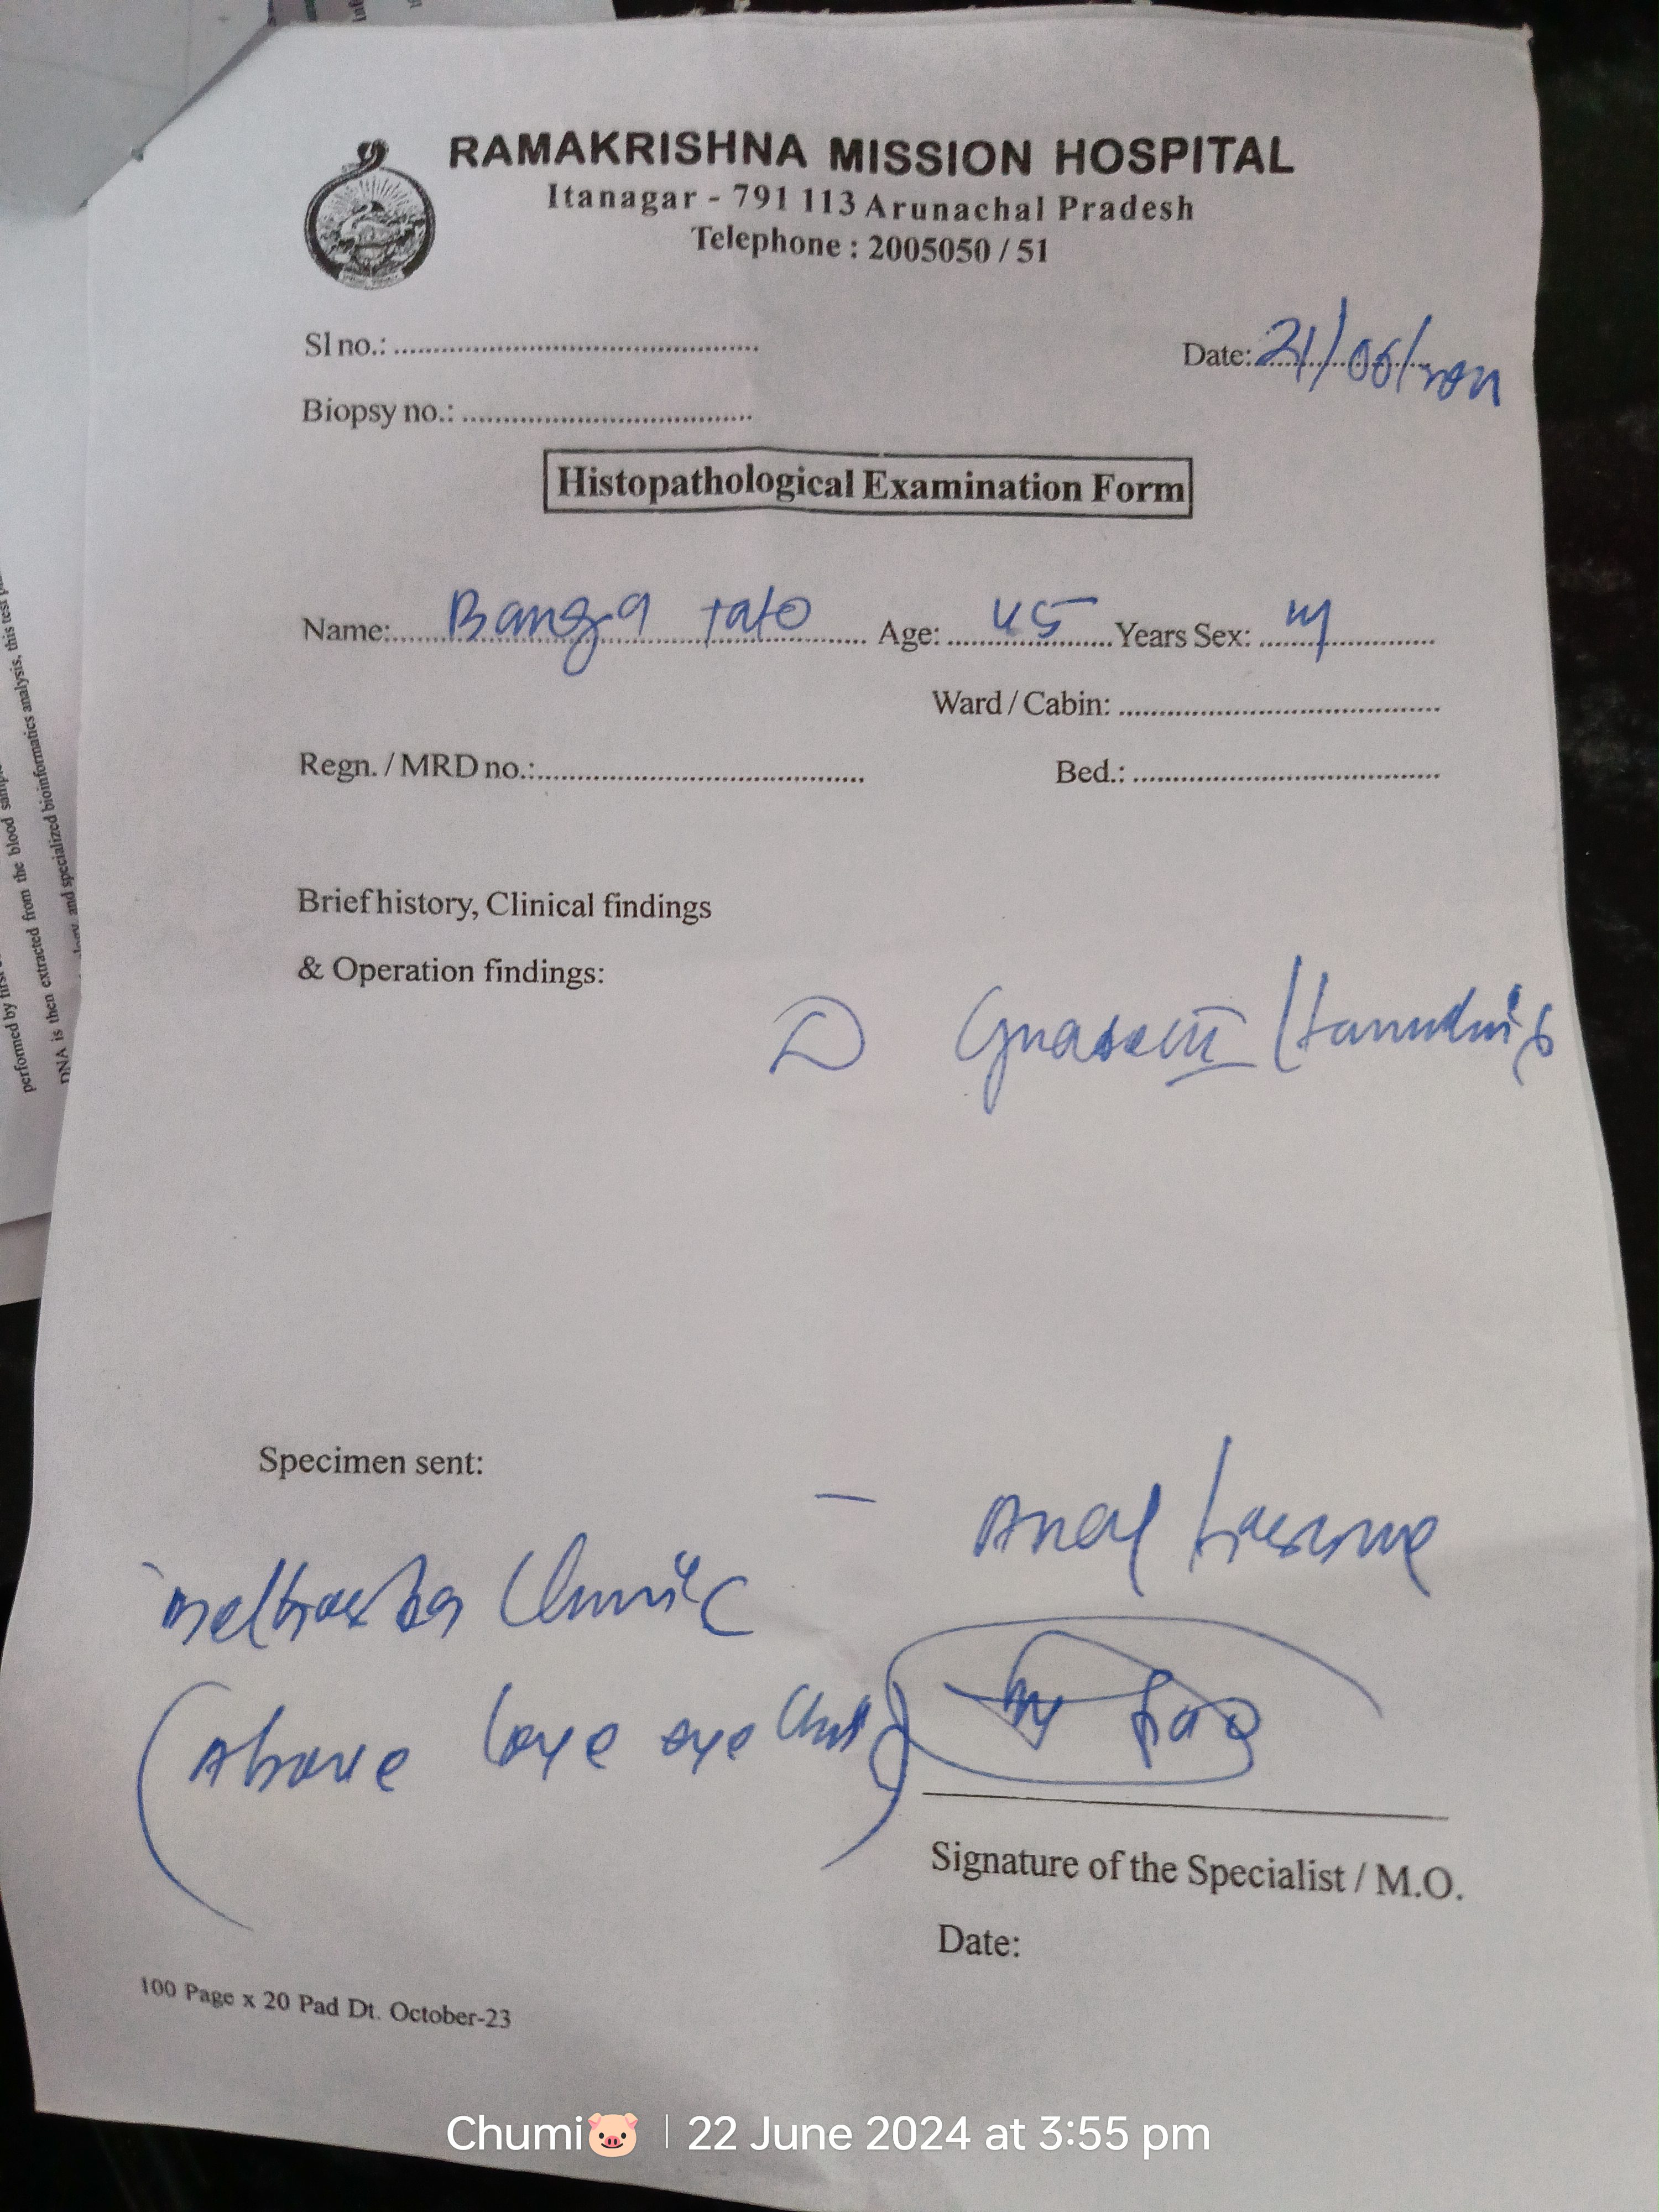 RAMAKRISHNA MISSION HOSPITAL
Itanagar - 791 113 Arunachal Pradesh
Telephone : 2005050 / 51
Sl no.:
Date: 21/06/
Biopsy no.:
Histopathological Examination Form
Name: Banga Tato Age: 45 Years Sex: M
Ward / Cabin:
Regn. / MRD no.: Bed.:
Brief history, Clinical findings
& Operation findings:
Specimen sent:
Anal
Clinic
(Above eye
Signature of the Specialist / M.O.
Date:
100 Page x 20 Pad Dt. October-23
Chumi🐷 | 22 June 2024 at 3:55 pm
performed by first
DNA is then extracted from the blood
and specialized bioinformatics analysis, this test